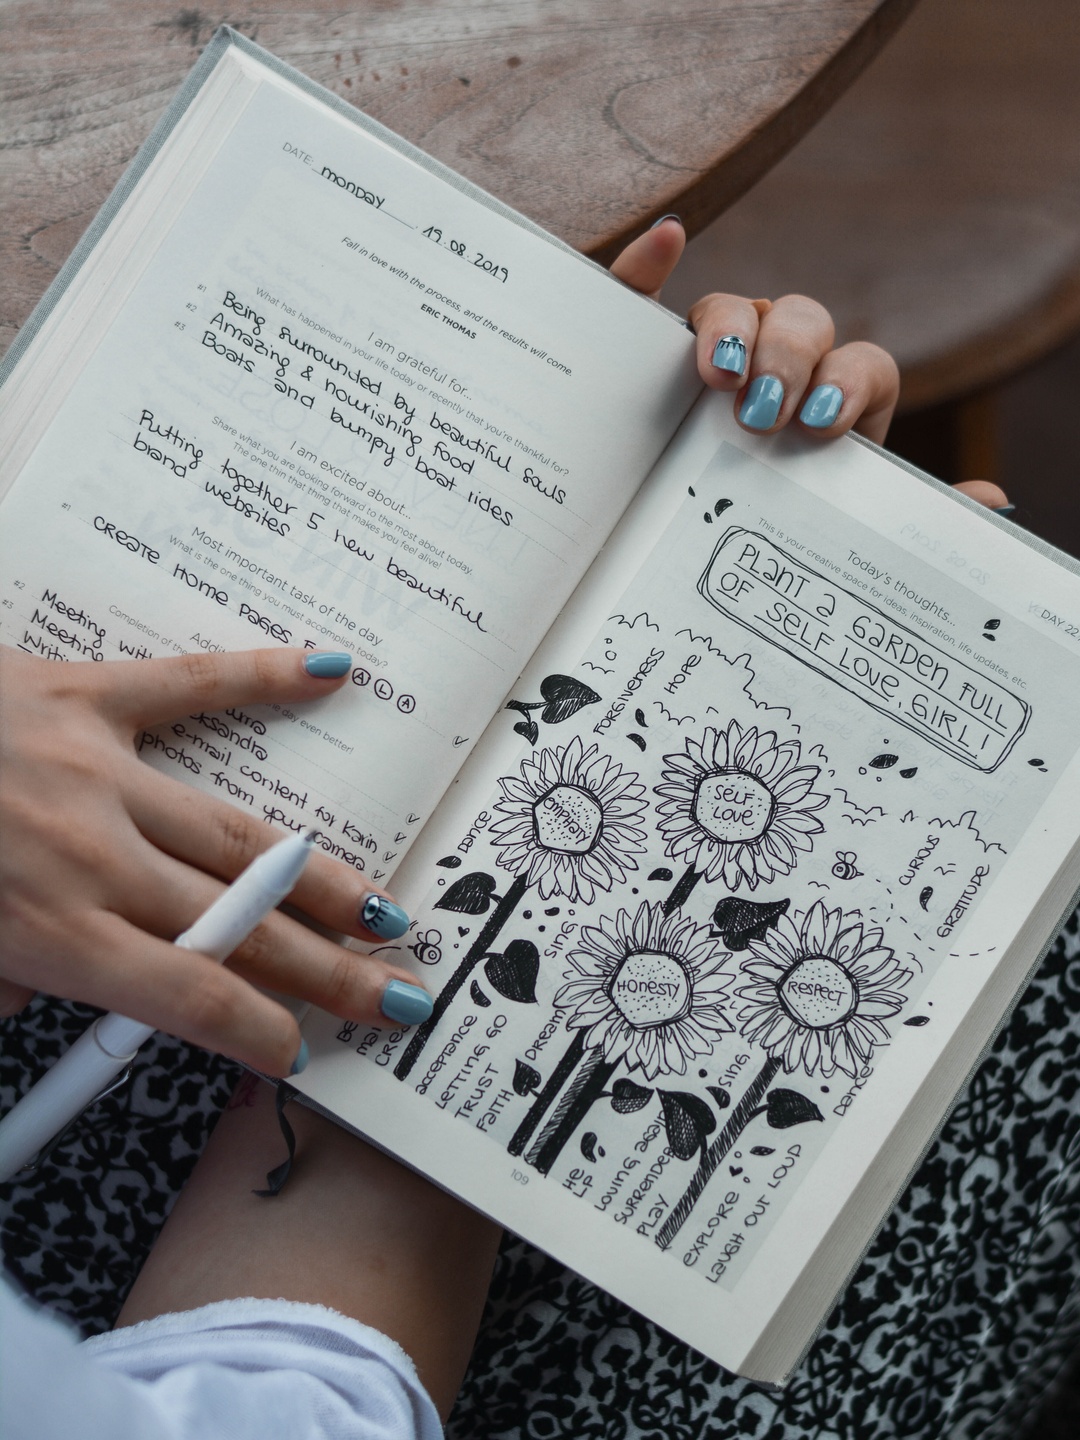 DATE: monday . 19.08.2019
Fall in love with the process, and the results will come.
ERIC THOMAS
I am grateful for...
What has happened in your life today or recently that you're thankful for?
#1 Being surrounded by beautiful souls
#2 Amazing & nourishing food
#3 Boats and bumpy boat rides
I am excited about...
Share what you are looking forward to the most about today.
The one thin that thing that makes you feel alive!
Putting together 5 new beautiful
brand websites
Most important task of the day
What is the one thing you must accomplish today?
#1 CREATE HOME PAGES
A L A
Completion of the
ne day even better!
#2 Meeting with
#3 Meeting
e-mail content for Karin
photos from your camera
DAY 22
Today's thoughts...
This is your creative space for ideas, inspiration, life updates, etc.
PLANT a GARDEN FULL
OF SELF LOVE, GIRL!
FORGIVENESS
HOPE
EMPHATY
SELF
LOVE
CURIOUS
GRATITUDE
DANCE
SING
HONESTY
RESPECT
acceptance
LETTING GO
TRUST
FAITH
DREAM
SING
Dance
HE
LP
LOVING again
SURRENDER
PLAY
EXPLORE
LAUGH OUT LOUD
109